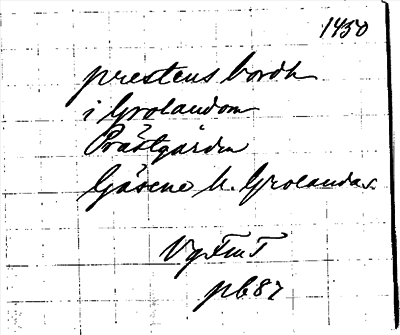 1450
prestens bordh
i Grolandom
Prästgården
Gäsene h. Grolanda s.
VgFmT
pl 87